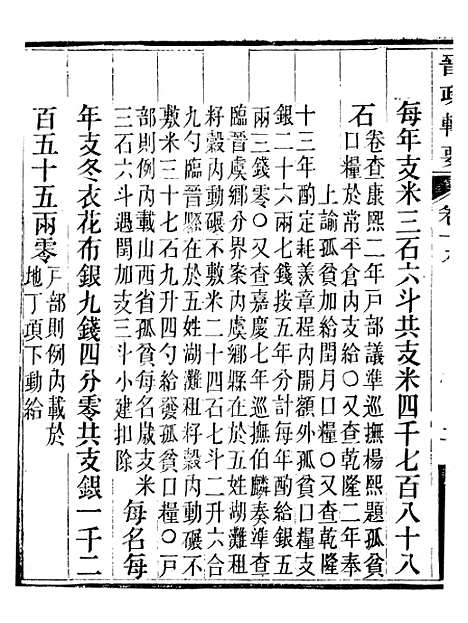 晉政輯要
每年支米三石六斗共支米四千七百八十八
石卷查康熙二年戸部議準巡撫楊熙題孤貧
口糧於常平倉内支給○又查乾隆二年奉
上諭孤貧加給閏月口糧○又查乾隆
十三年酌定耗羨章程内開額外孤貧口糧
銀二十六兩七錢按五分計每年酌給銀五
兩三錢零○又查嘉慶七年巡撫伯麟奏準查
臨晉虞鄉分界案内虞鄉縣在於五姓湖灘租
籽穀内動碾不敷米二十四石七斗二升六合
九勺臨晉縣在於五姓湖灘租籽穀内動碾不
敷米三十七石九升四勺給發孤貧口糧○戸
部則例内載山西省孤貧每名歲支米
三石六斗遇閏加支三斗小建扣除
每名每
年支冬衣花布銀九錢四分零共支銀一千二
百五十五兩零
戸部則例内載於
地丁項下動給